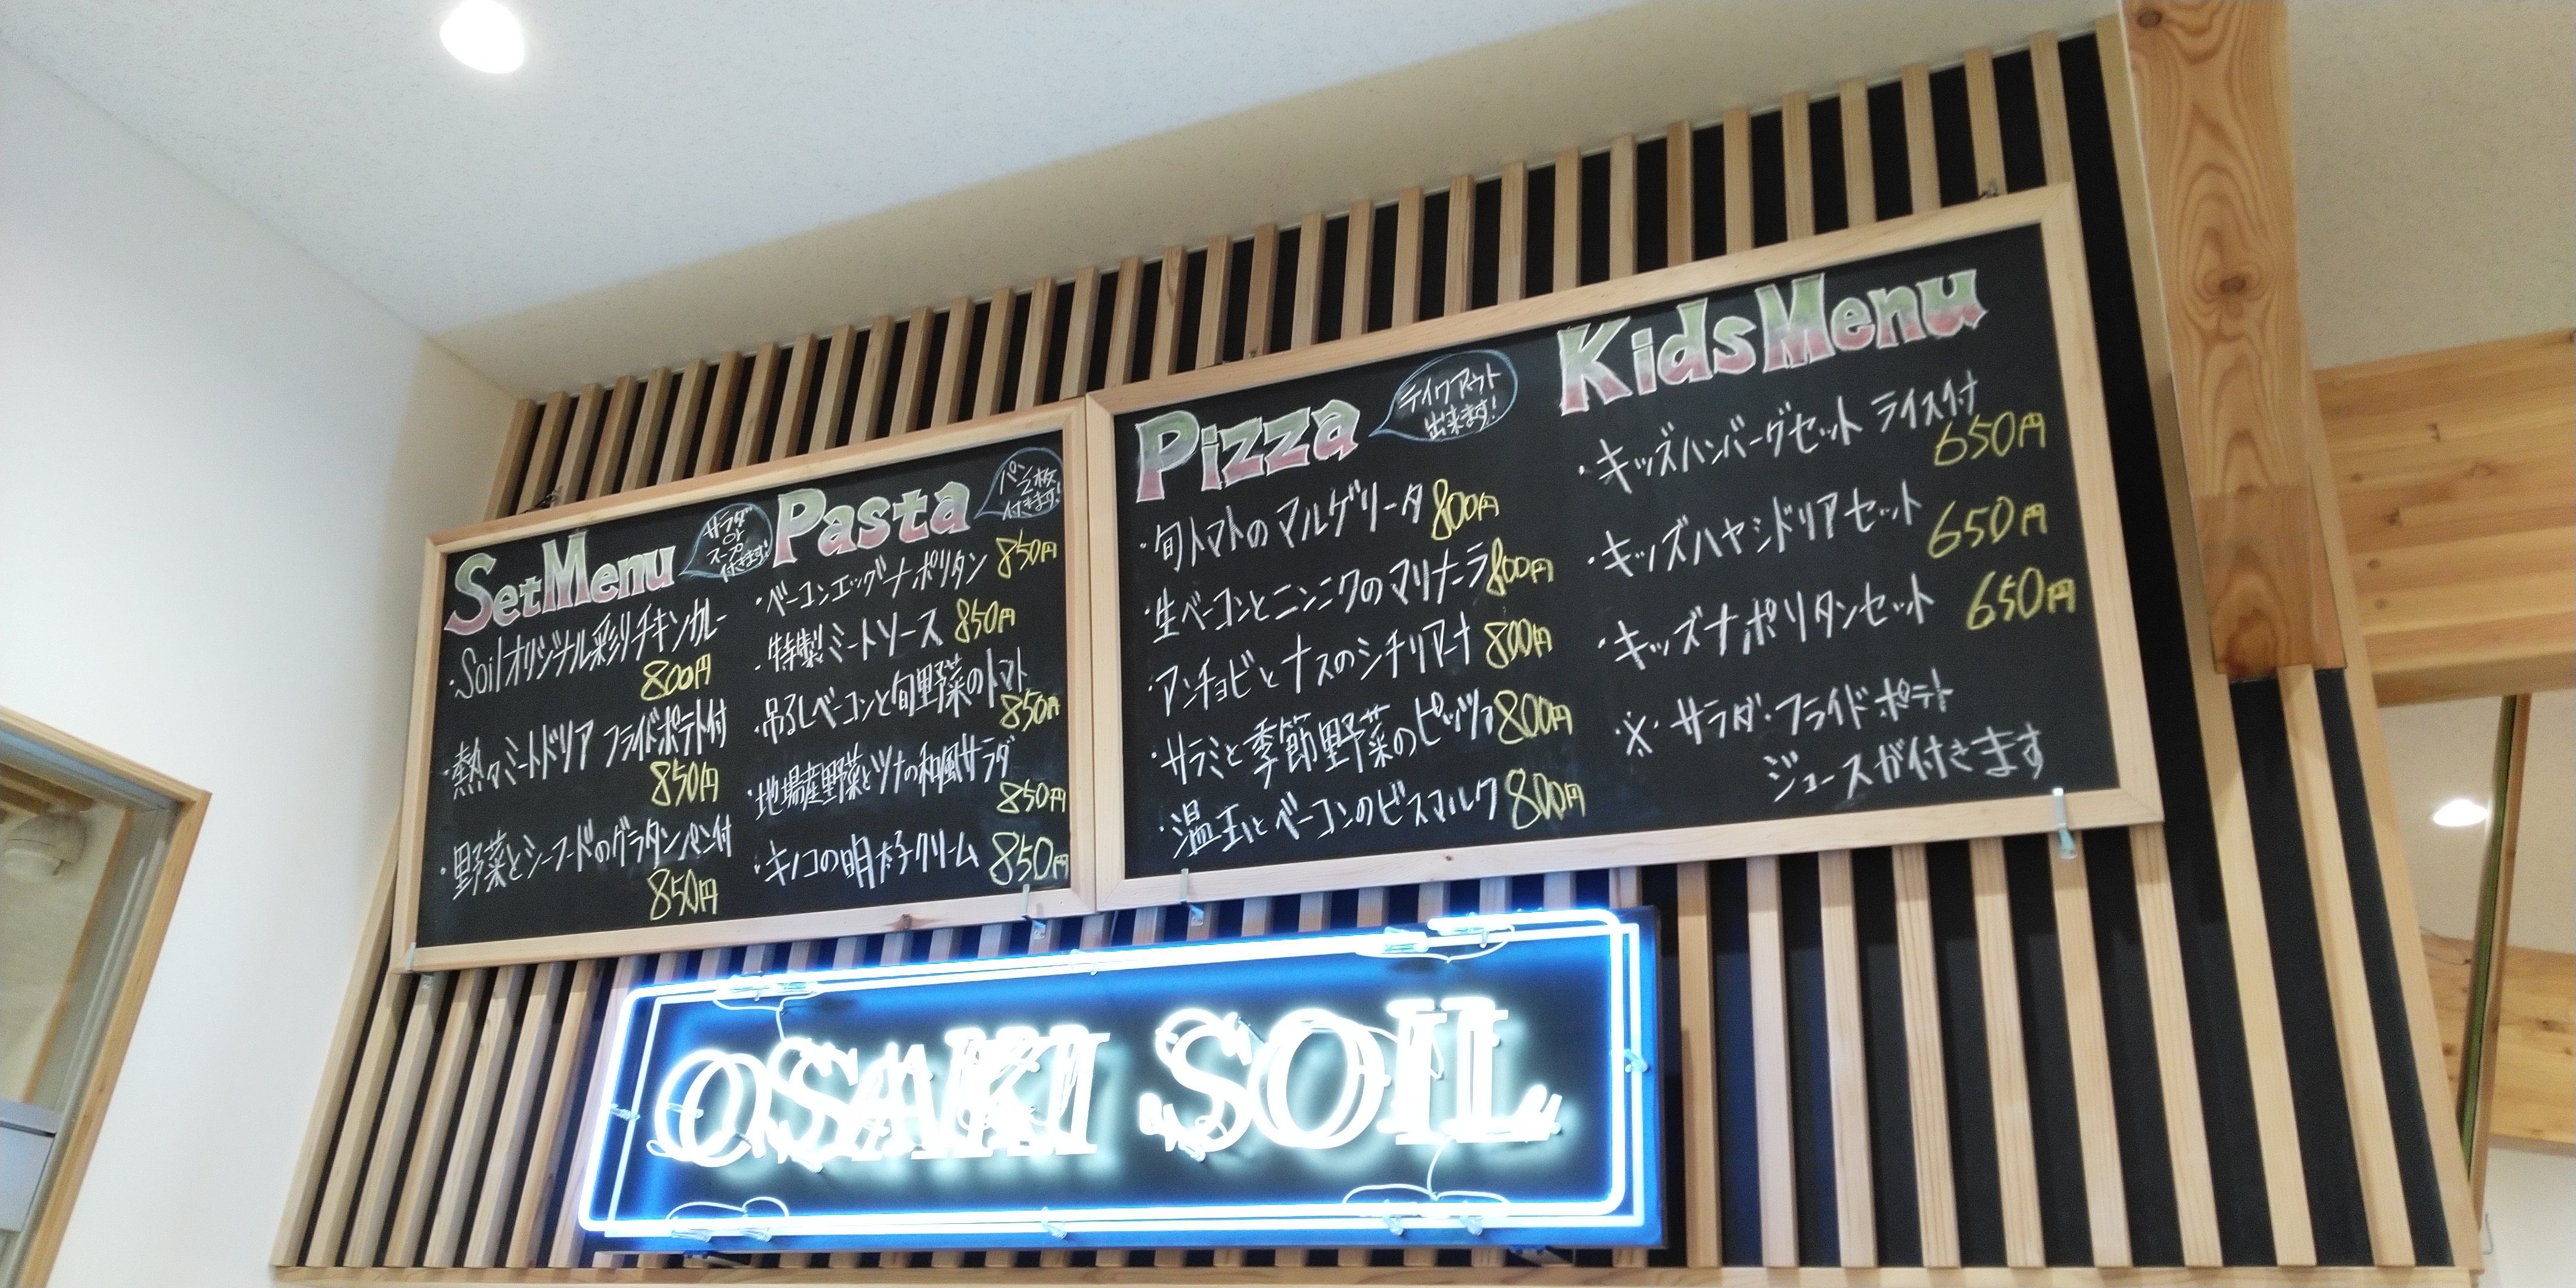 SetMenu
サラダ
or
スープ
付きます!
・Soilオリジナル彩りチキンカレー
800円
・熱々ミートドリア フライドポテト付
850円
・野菜とシーフードのグラタン パン付
850円
Pasta
パン2枚
付きます!
・ベーコンエッグナポリタン 850円
・特製ミートソース 850円
・吊るしベーコンと旬野菜のトマト
850円
・地場産野菜とツナの和風サラダ
850円
・キノコの明太子クリーム 850円
Pizza
テイクアウト
出来ます!
・旬トマトのマルゲリータ 800円
・生ベーコンとニンニクのマリナーラ 800円
・アンチョビとナスのシチリアーナ 800円
・サラミと季節野菜のピッツァ 800円
・温玉とベーコンのビスマルク 800円
KidsMenu
・キッズハンバーグセット ライス付
650円
・キッズハヤシドリアセット 650円
・キッズナポリタンセット 650円
※・サラダ・フライドポテト
ジュースが付きます
OSAKI SOIL